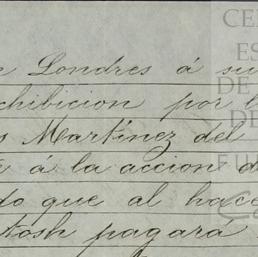 Londres á su
chibicion por l
Martinez del
á la accion d
do que al hace
tosh pagará